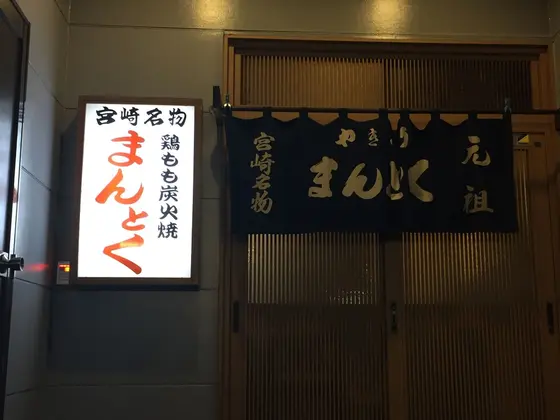 宮崎名物
鶏もも炭火焼
まんとく
元祖
やきとり
まんとく
宮崎名物